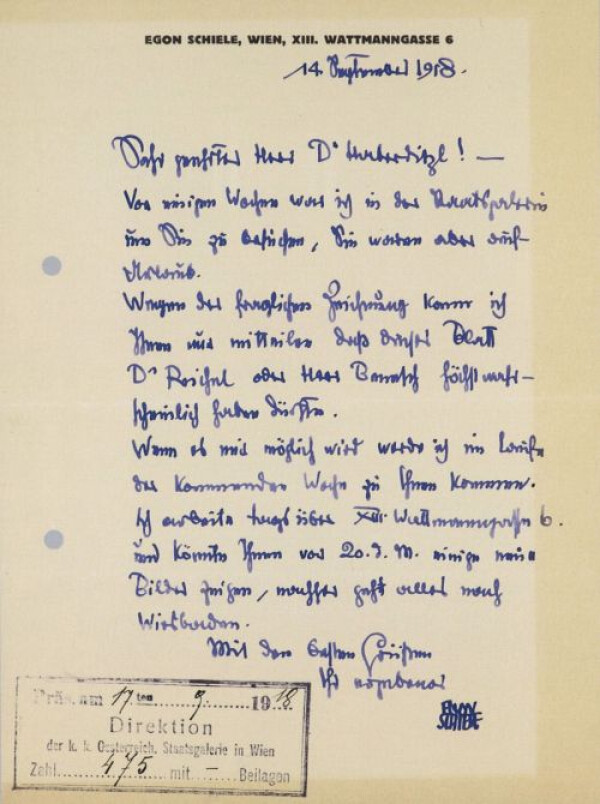 EGON SCHIELE, WIEN, XIII. WATTMANNGASSE 6
14. September 1918.
Sehr geehrter Herr Dr Haberditzl! —
Vor einigen Wochen war ich in der Staatsgalerie
um Sie zu besuchen, Sie waren aber auf
Urlaub.
Wegen der fraglichen Zeichnung kann ich
Ihnen nur mitteilen daß dieses Blatt
Dr Reichel oder Herr Benesch höchstwahr-
scheinlich haben dürfte.
Wenn es mir möglich wird werde ich im Laufe
der kommenden Woche zu Ihnen kommen.
Ich arbeite tagsüber XIII. Wattmanngasse 6.
und könnte Ihnen vor 20. d. M. einige neue
Bilder zeigen, nachher geht alles nach
Wiesbaden.
Mit den besten Grüßen
Ihr ergebener
EGON
SCHIELE
Präs. am 17ten 9. 1918
Direktion
der k. k. Oesterreich. Staatsgalerie in Wien
Zahl 475 mit — Beilagen